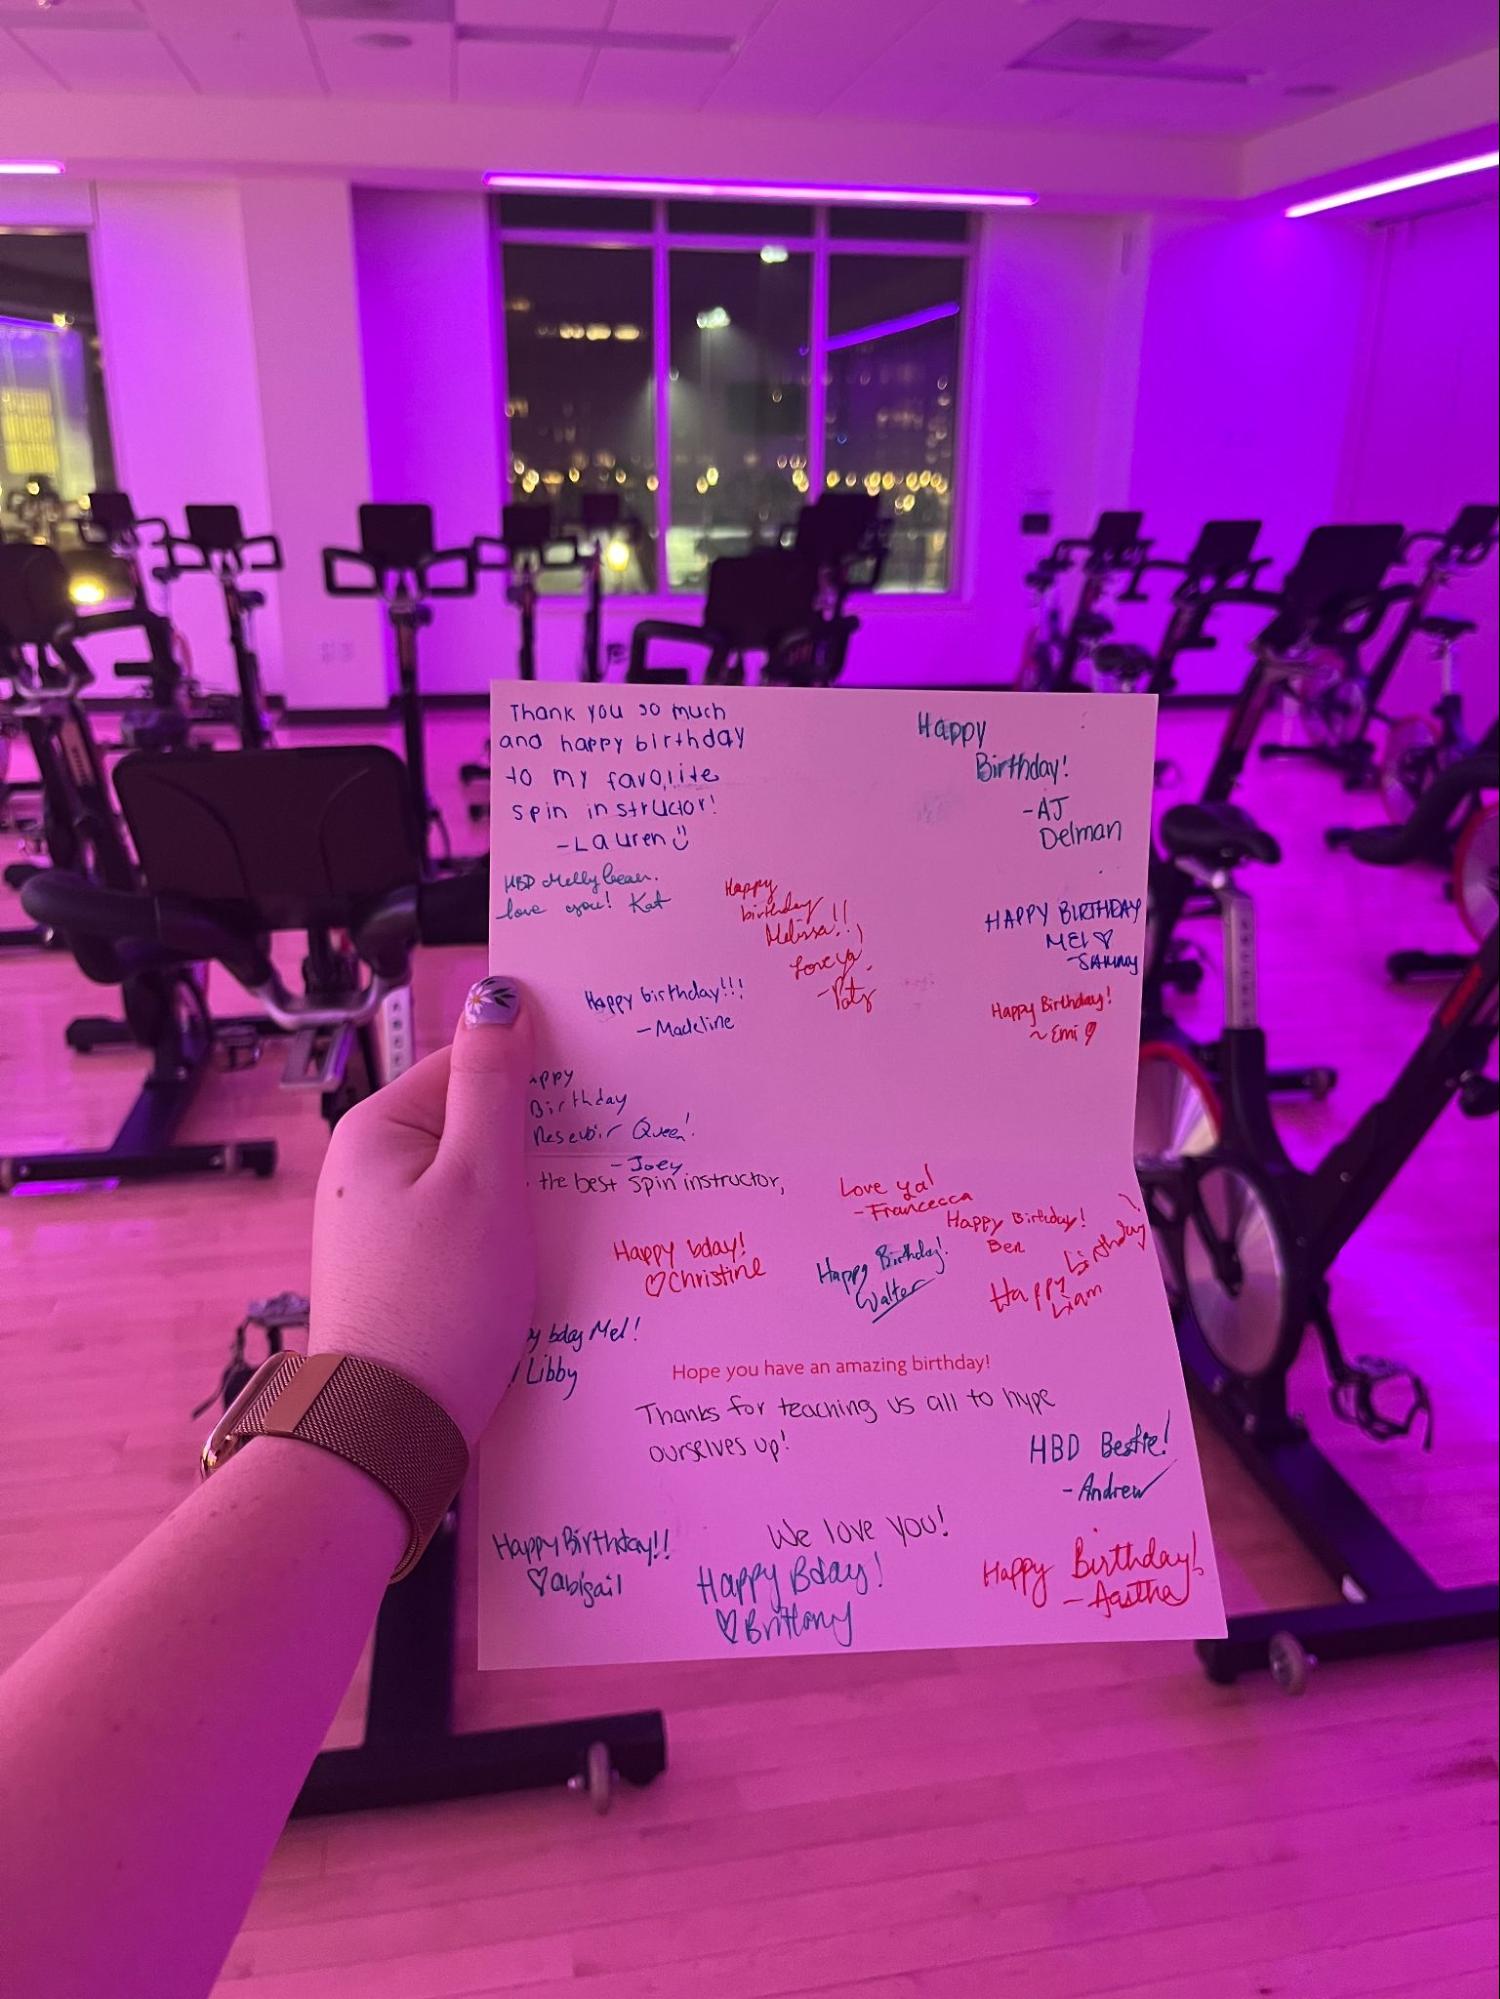 Thank you so much
and happy birthday
to my favorite
spin instructor!
-Lauren
Happy
Birthday!
-AJ
Delman
HBD Mellybean.
love you! Kat
Happy
birthday
Melissa!!
Love ya
-Paty
HAPPY BIRTHDAY
MEL ♡
-SAMMY
Happy birthday!!!
-Madeline
Happy Birthday!
~Emi
appy
Birthday
Resevoir Queen!
-Joey
the best spin instructor,
Love ya!
-Francesca
Happy Birthday!
Ben
Happy bday!
♡Christine
Happy Birthday!
Walter
Happy birthday!
Liam
y bday Mel!
Libby
Hope you have an amazing birthday!
Thanks for teaching us all to hype
ourselves up!
HBD Bestie!
-Andrew
We love you!
Happy Birthday!!
♡abigail
Happy Bday!
♡Brittany
Happy Birthday!
-Aastha